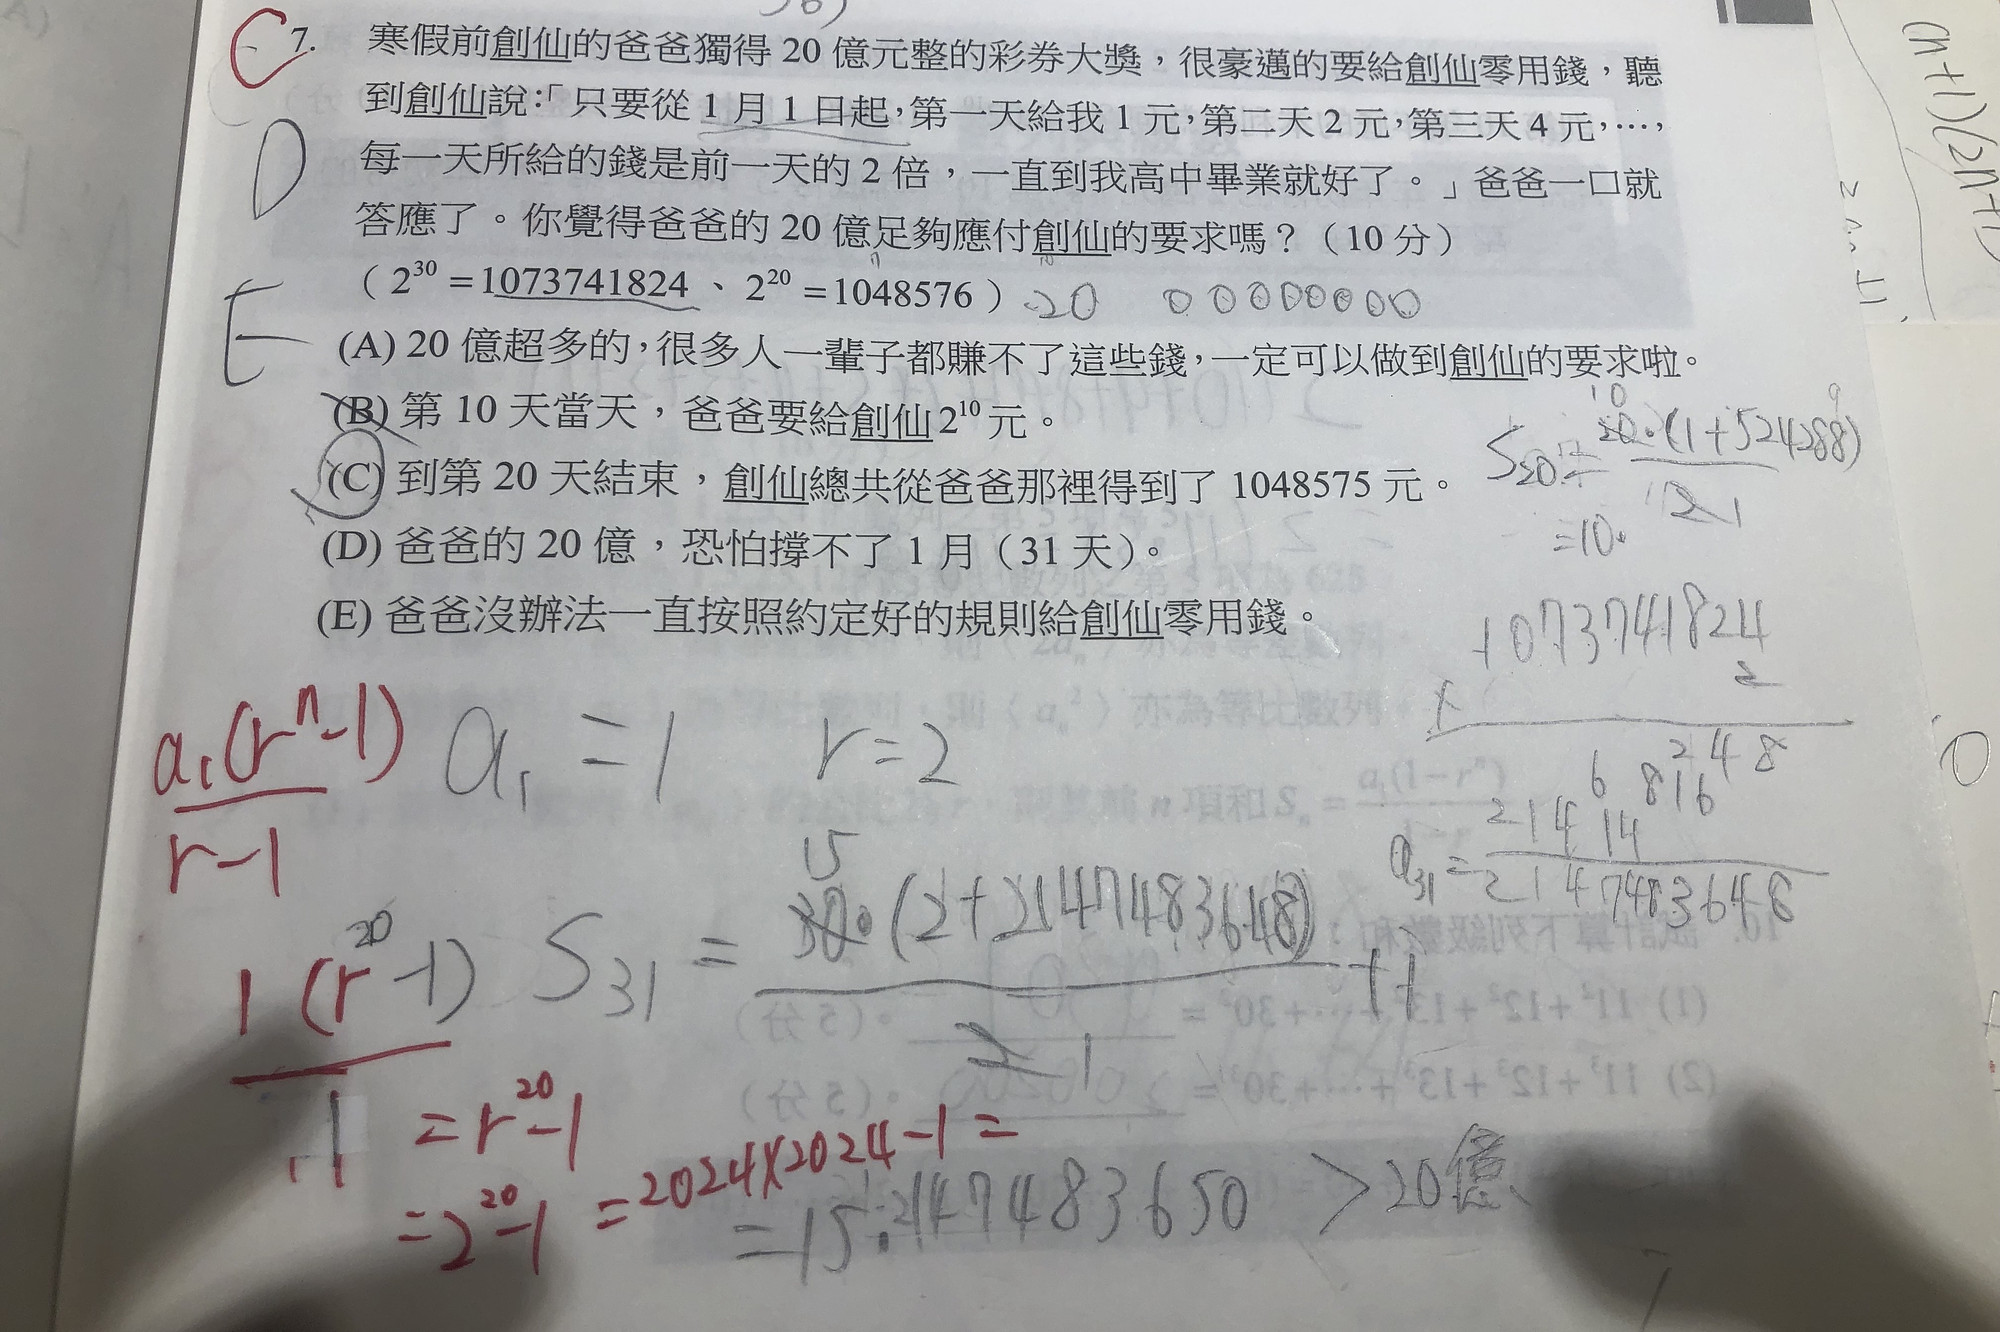 C 7. 寒假前創仙的爸爸獨得 20 億元整的彩券大獎，很豪邁的要給創仙零用錢，聽
到創仙說：「只要從 1 月 1 日起，第一天給我 1 元，第二天 2 元，第三天 4 元，…，
D
每一天所給的錢是前一天的 2 倍，一直到我高中畢業就好了。」爸爸一口就
答應了。你覺得爸爸的 20 億足夠應付創仙的要求嗎？（10 分）
（2³⁰ =1073741824 、 2²⁰ =1048576） 20 00000000
E
(A) 20 億超多的，很多人一輩子都賺不了這些錢，一定可以做到創仙的要求啦。
(B) 第 10 天當天，爸爸要給創仙 2¹⁰ 元。
(C) 到第 20 天結束，創仙總共從爸爸那裡得到了 1048575 元。
(D) 爸爸的 20 億，恐怕撐不了 1 月（31 天）。
(E) 爸爸沒辦法一直按照約定好的規則給創仙零用錢。
(n+1)(2n+1)
10
S20 = 20·(1+524288)
2 1
=10·
1073741824
× 2
248
6 816
214 14
a31 = 2147483648
a₁(rⁿ-1)
r-1
a₁ = 1 r = 2
15
S31 = 30·(2+2147483648)
2 1
1(r²⁰-1)
1
= r²⁰-1
= 2²⁰-1 = 2024×2024-1 =
= 15·2147483650 > 20億